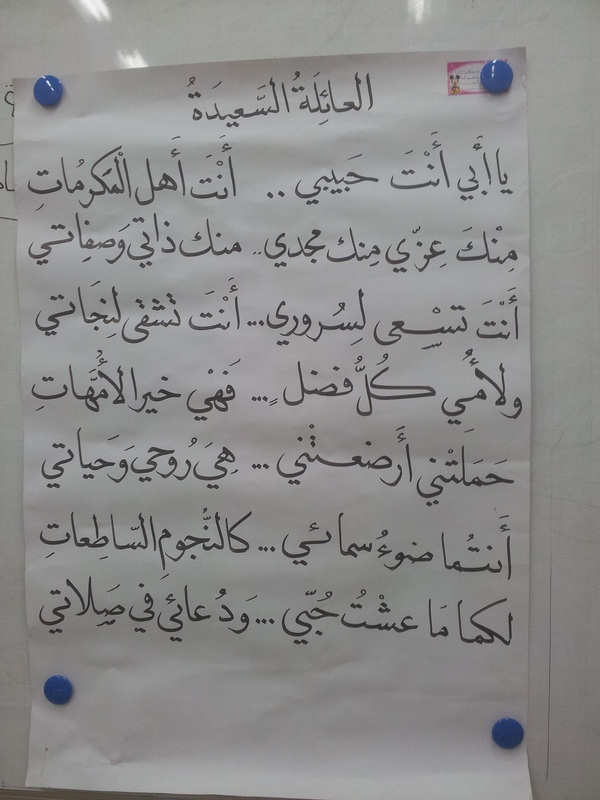 العائِلَةُ السَّعِيدَةُ
يا أَبي أَنْتَ حَبيبي .. أَنْتَ أَهل الْمَكرمُاتِ
مِنْكَ عِزّي مِنك مجدي .. منك ذاتي وَصفِاتي
أَنْتَ تسْعى لِسُروري ... أَنْتَ تَشقى لِنجَاتي
ولأمُي كُلُّ فضل ... فَهْي خير الأمُهَّاتِ
حَمَلتْني أَرضعتْني ... هِيَ رُوحي وَحَياتي
أَنتُما ضوءُ سمائي ... كالنُّجومِ السّاطِعاتِ
لكما مَا عشْتُ حُبّي ... وَدُعائي في صِلاتي